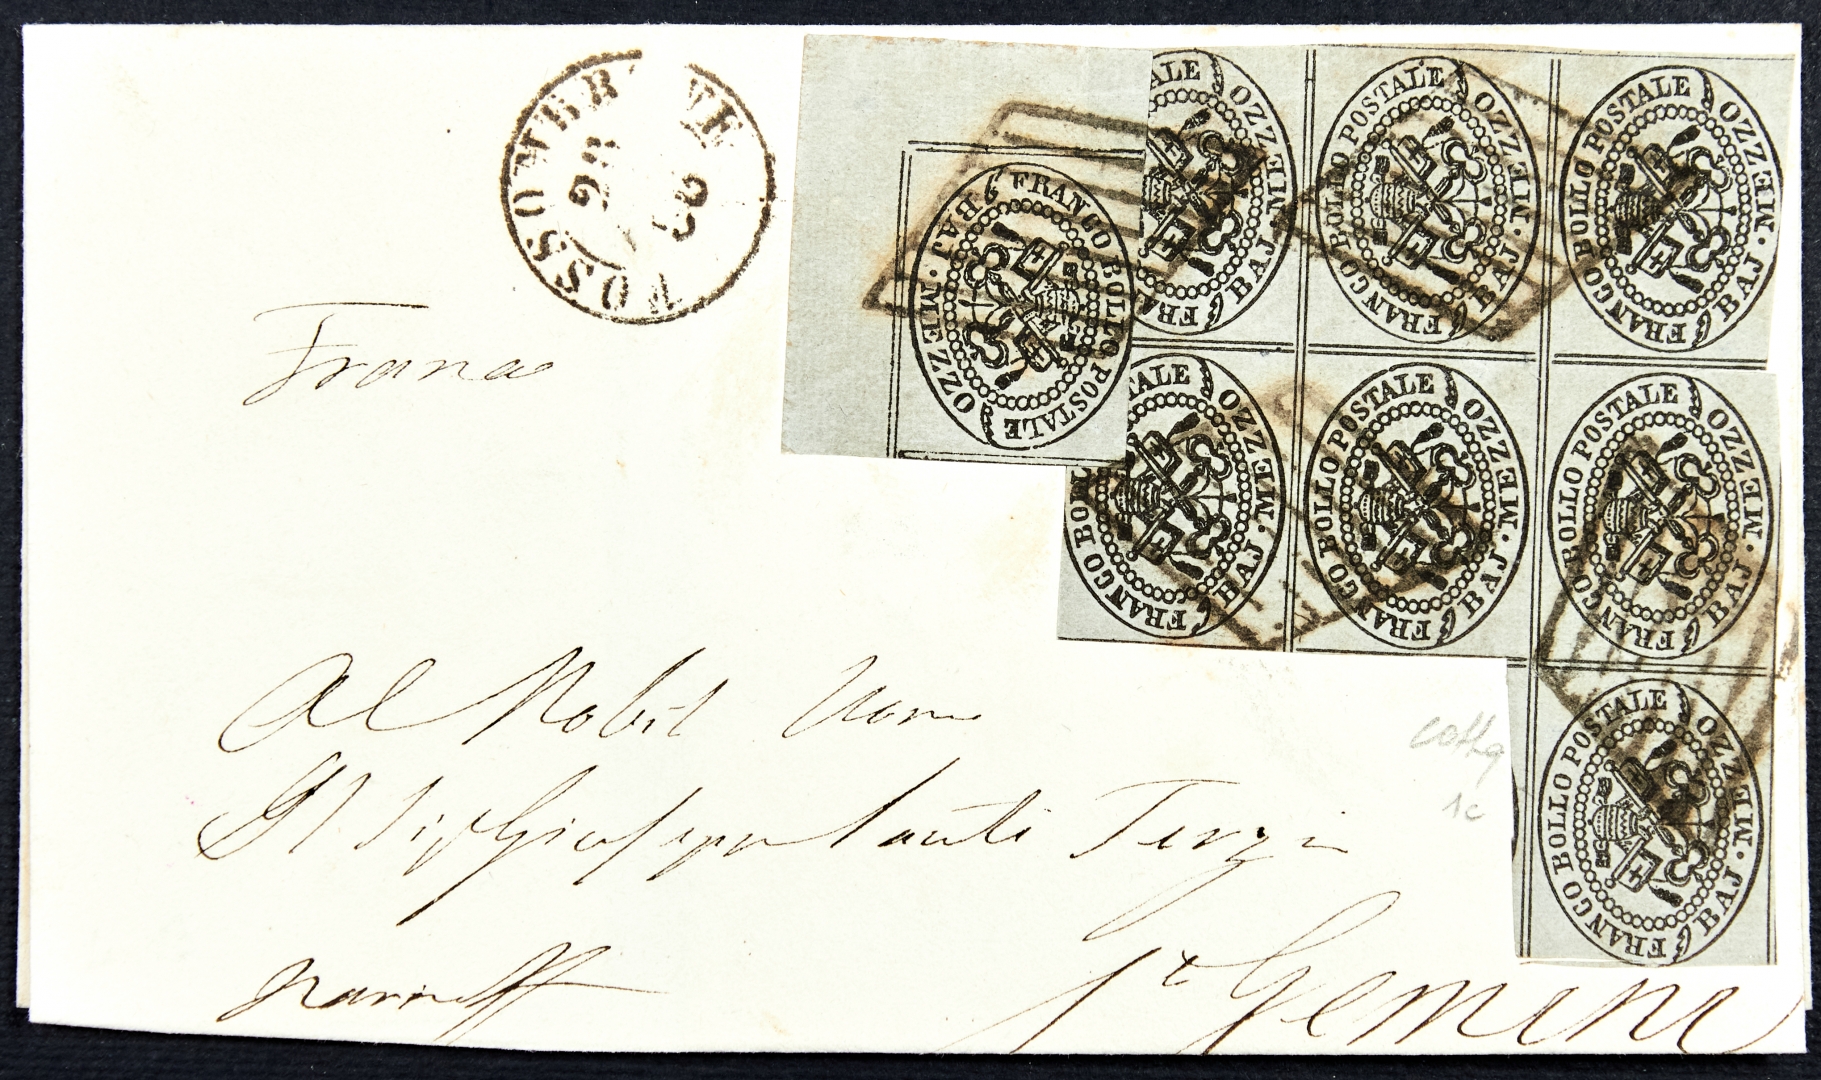 FOSSOMBRONE
23
Franca
FRANCO BOLLO POSTALE
BAJ. MEZZO
ALE
MEZZO
FR
BAJ
FRANCO BOLLO POSTALE
BAJ. MEZZO
FRANCO BOLLO POSTALE
BAJ. MEZZO
FRANCO BO TALE
BAJ. MEZZO
FRANCO BOLLO POSTALE
BAJ. MEZZO
FRANCO BOLLO POSTALE
BAJ. MEZZO
FRANCO BOLLO POSTALE
BAJ. MEZZO
Al Nobil Uomo
Il Sig Giuseppe Santi Terzi
1c
St Gemini